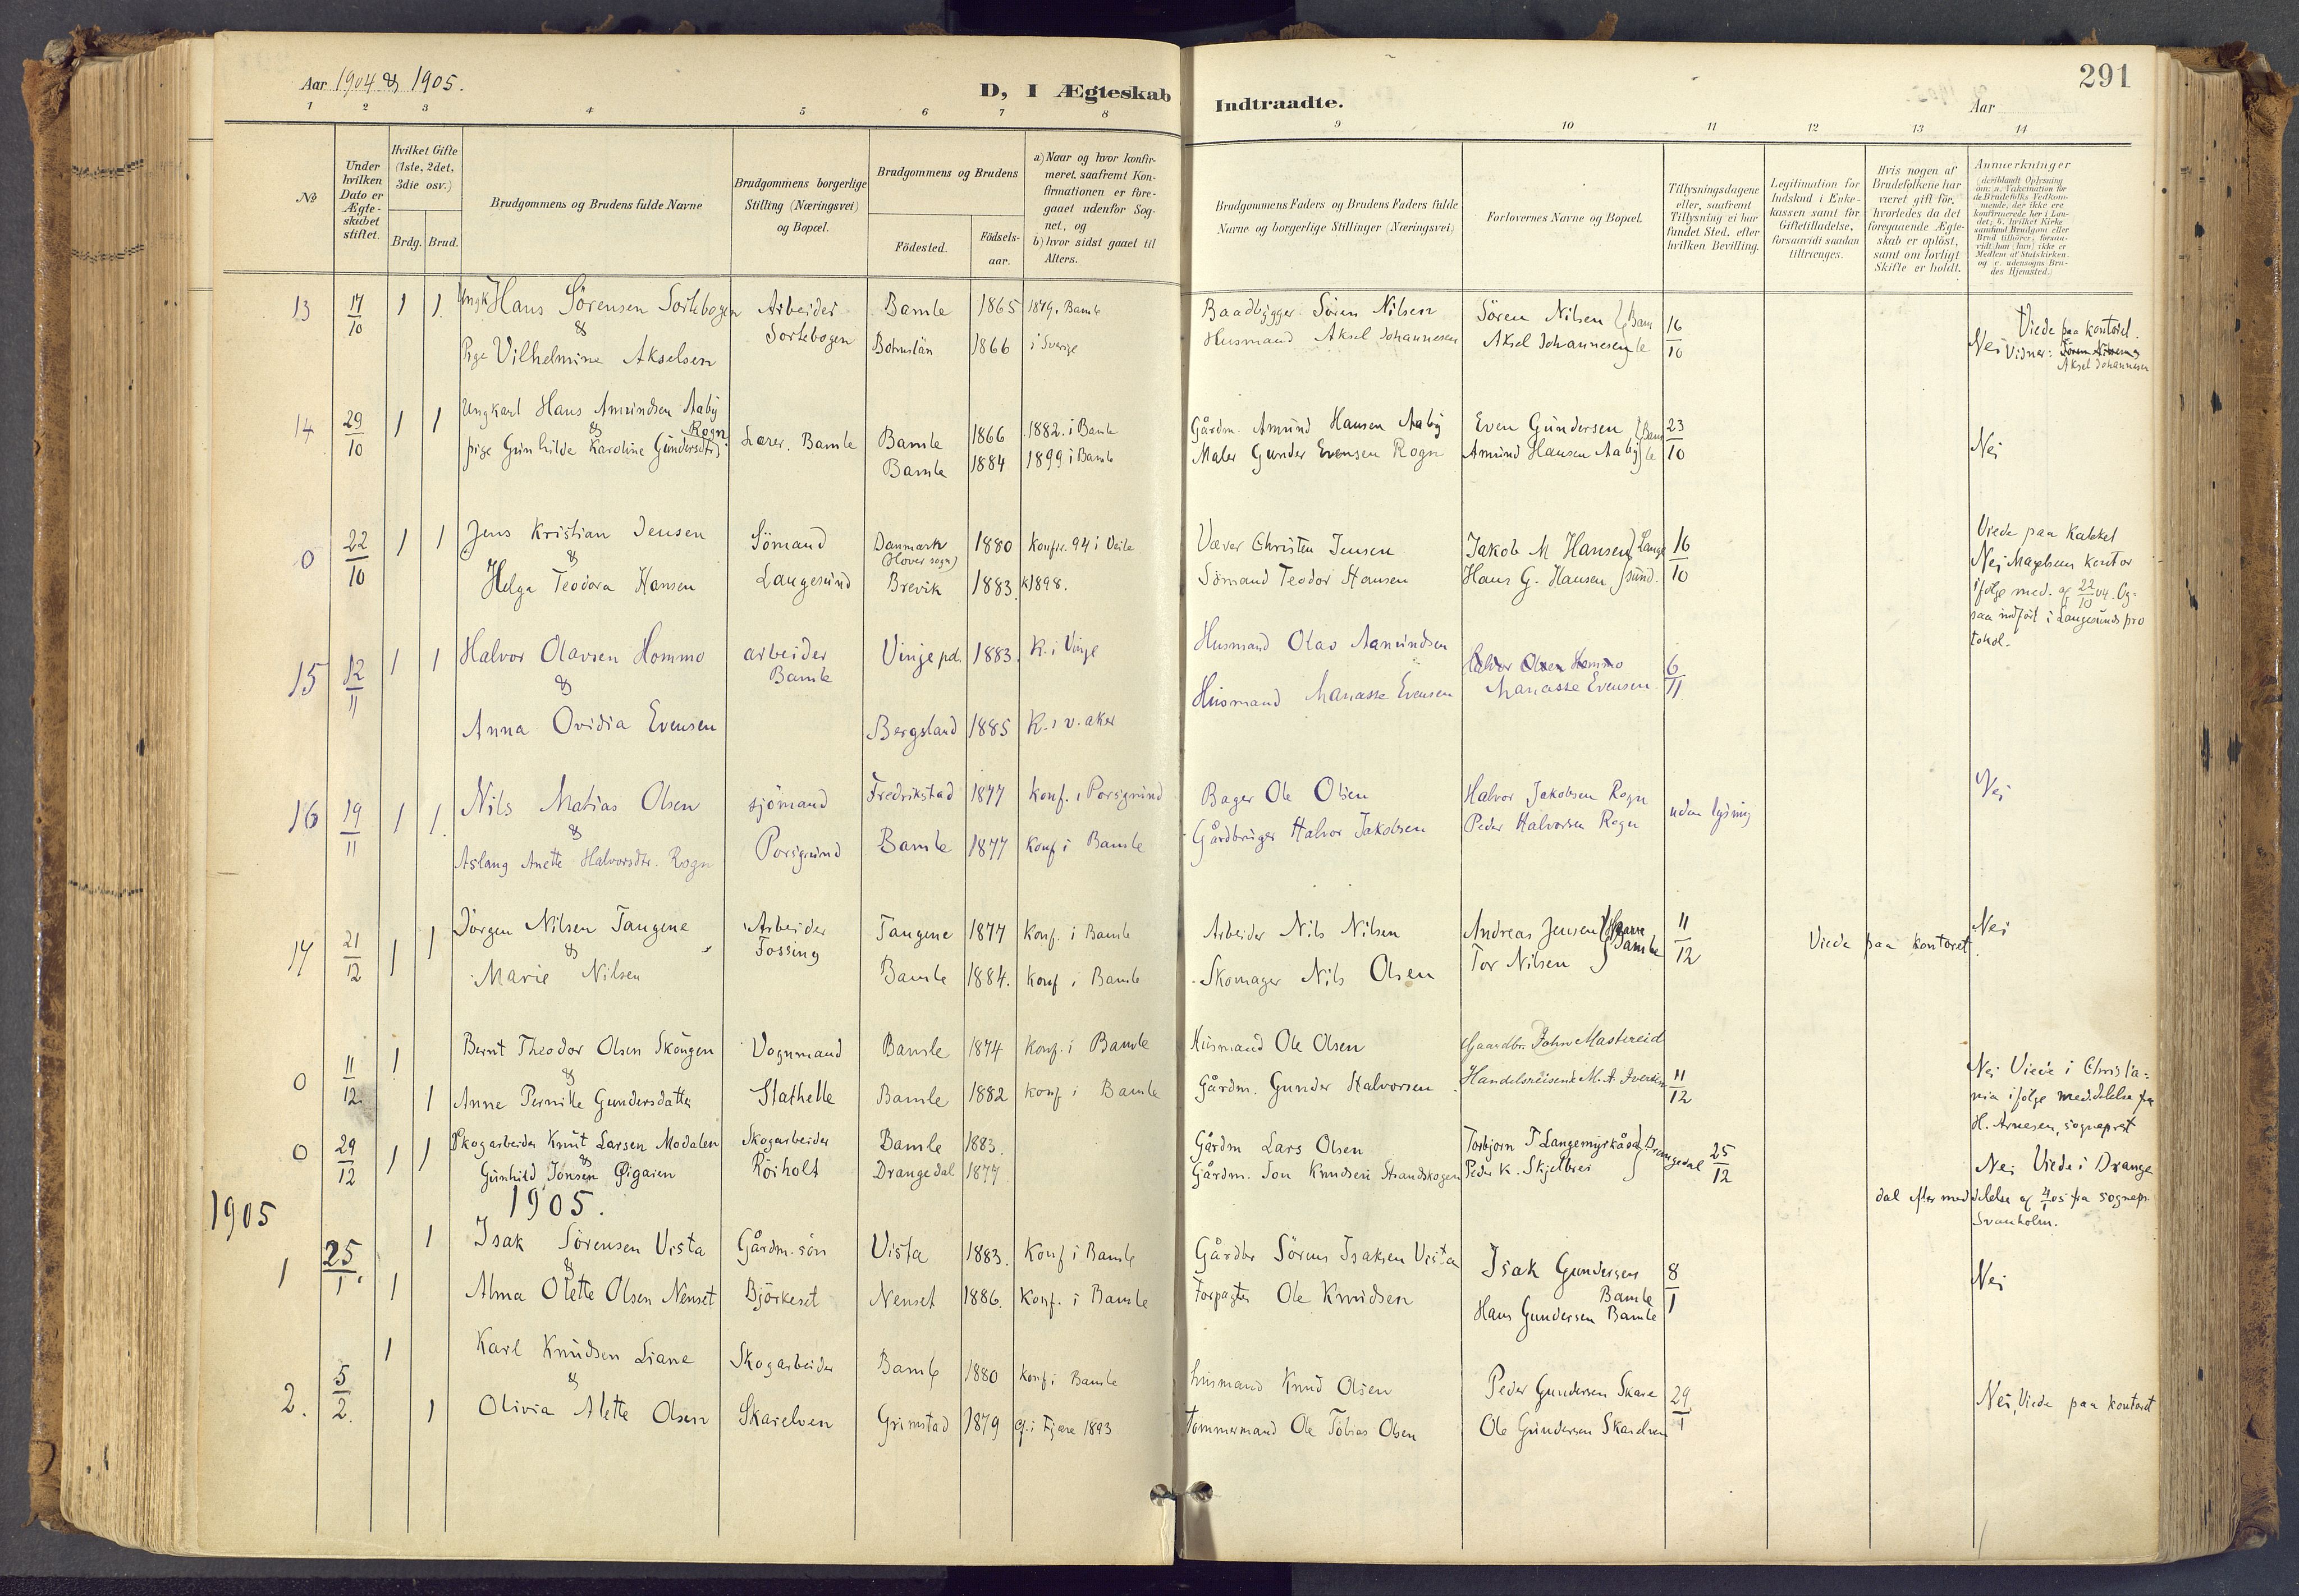 Aar 1904 & 1905.
D, I Ægteskab Indtraadte.
Aar
291
1 2 3 4 5 6 7 8 9 10 11 12 13 14
No
Under hvilken Dato er Ægteskabet stiftet.
Hvilket Gifte (1ste, 2det, 3die osv.)
Brdg. Brud.
Brudgommens og Brudens fulde Navne
Brudgommens borgerlige Stilling (Næringsvei) og Bopæl.
Brudgommens og Brudens
Födested. Födselsaar.
a) Naar og hvor konfirmeret, saafremt Konfirmationen er foregaaet udenfor Sognet, og
b) hvor sidst gaaet til Alters.
Brudgommens Faders og Brudens Faders fulde Navne og borgerlige Stillinger (Næringsvei)
Forlovernes Navne og Bopæl.
Tillysningsdagene eller, saafremt Tillysning ei har fundet Sted, efter hvilken Bevilling.
Legitimation for Indskud i Enkekassen samt for Giftetilladelse, forsaavidt saadan tiltrænges.
Hvis nogen af Brudefolkene har været gift för, hvorledes da det foregaaende Ægteskab er oplöst, samt om lovligt Skifte er holdt.
Anmerkninger
13 17/10 1 1. Ungk Hans Sörensen Sortebogen Arbeider Bamle 1865 1879. Bamle Baadbygger Sören Nilsen Sören Nilsen 16/10 Viede paa kontoret.
& Sortebogen
Pige Vilhelmine Akselsen Bohuslän 1866 i Sverige Husmand Aksel Johannesen Aksel Johannesen Bamle Nei Vidner: Sören Nilsen & Aksel Johannesen
14 29/10 1 1 Ungkarl Hans Amundsen Aaby Lærer. Bamle Bamle 1866 1882. i Bamle Gårdm. Amund Hansen Aaby Even Gundersen 23/10 Nei
& Rogn
pige Gunhilde Karoline Gundersdtr Bamle 1884 1899 i Bamle Maler Gunder Evensen Rogn Amund Hansen Aaby Bamle
0 22/10 1 1 Jens Kristian Jensen Sömand Danmark (Hover sogn) 1880 Konfir. 94 i Veile Væver Christen Jensen Jakob M Hansen 16/10 Viede paa
&
Helga Teodora Hansen Langesund Brevik 1883. K 1898. Sömand Teodor Hansen Hans G. Hansen Langesund. Nei kontor
ifölge med. af 22/10 04. Ogsaa indfört i Langesunds protokol.
15 12/11 1 1 Halvor Olavsen Hommo arbeider Bamle Vinje pd. 1883. K. i Vinje Husmand Olav Aamundsen Halvor Olsen Hommo 6/11
&
Anna Ovidia Evensen Bergsland 1885 K. i v. aker Husmand Manasse Evensen Manasse Evensen.
16 19/11 1 1. Nils Matias Olsen sjömand Fredrikstad 1877 Konf. i Porsgrund Bager Ole Olsen Halvor Jakobsen Rogn uden lysning Nei
&
Aslaug Anette Halvorsdtr. Rogn Porsgrund Bamle 1877 Konf i Bamle Gårdbruger Halvor Jakobsen Peder Halvorsen Rogn
17 21/12 1 1 Jörgen Nilsen Tangene Arbeider Fossing Tangene 1877 Konf. i Bamle Arbeider Nils Nilsen Andreas Jensen 11/12 Viede paa kontoret Nei
&
Marie Nilsen Bamle 1884. Konf i Bamle Skomager Nils Olsen Tor Nilsen Bamle
0 11/12. 1 Bernt Theodor Olsen Skougen Vognmand Bamle 1874 Konf. i Bamle Husmand Ole Olsen Gaardbr. John Mastereid
&
1 Anne Pernille Gundersdatter Stathelle Bamle 1882 Konf i Bamle Gårdm. Gunder Halvorsen Handelsreisende M. A. Iversen 11/12 Nei Viede i Christiania ifölge meddelelse fra H. Arnesen, sogneprest
0 29/12 1 1 Skogarbeider Knut Larsen Modalen Skogarbeider Bamle 1883. Gårdm Lars Olsen Torbjorn T Langemyrkåsa 25/12
&
Gunhild Jonsen Øigaren Röiholt Drangedal 1877 Gårdm. Jon Knudsen Strandskogen Peder K. Skjelbrei Drangedal Nei Viede i Drangedal efter meddelelse af 4/1 05 fra sognepr. Svanholm.
1905
1905.
1 25/1. 1 Isak Sörensen Vista Gårdm. sön Vista 1883. Konf i Bamle Gårdbr Sörens Isaksen Vista Isak Gundersen Bamle 8/1 Nei
&
1 Alma Olette Olsen Nenset Björkeset Nenset 1886. Konf. i Bamle Forpagter Ole Knudsen Hans Gundersen Bamle
2. 5/2. 1 Karl Knudsen Liane Skogarbeider Bamle 1880 Konf i Bamle husmand Knud Olsen Peder Gundersen Skare 29/1 Nei, Viede paa kontoret
&
1 Olivia Alette Olsen Skarelven Grimstad 1879 i Fjære 1893 Tømmermand Ole Tobias Olsen Ole Gundersen Skarelven